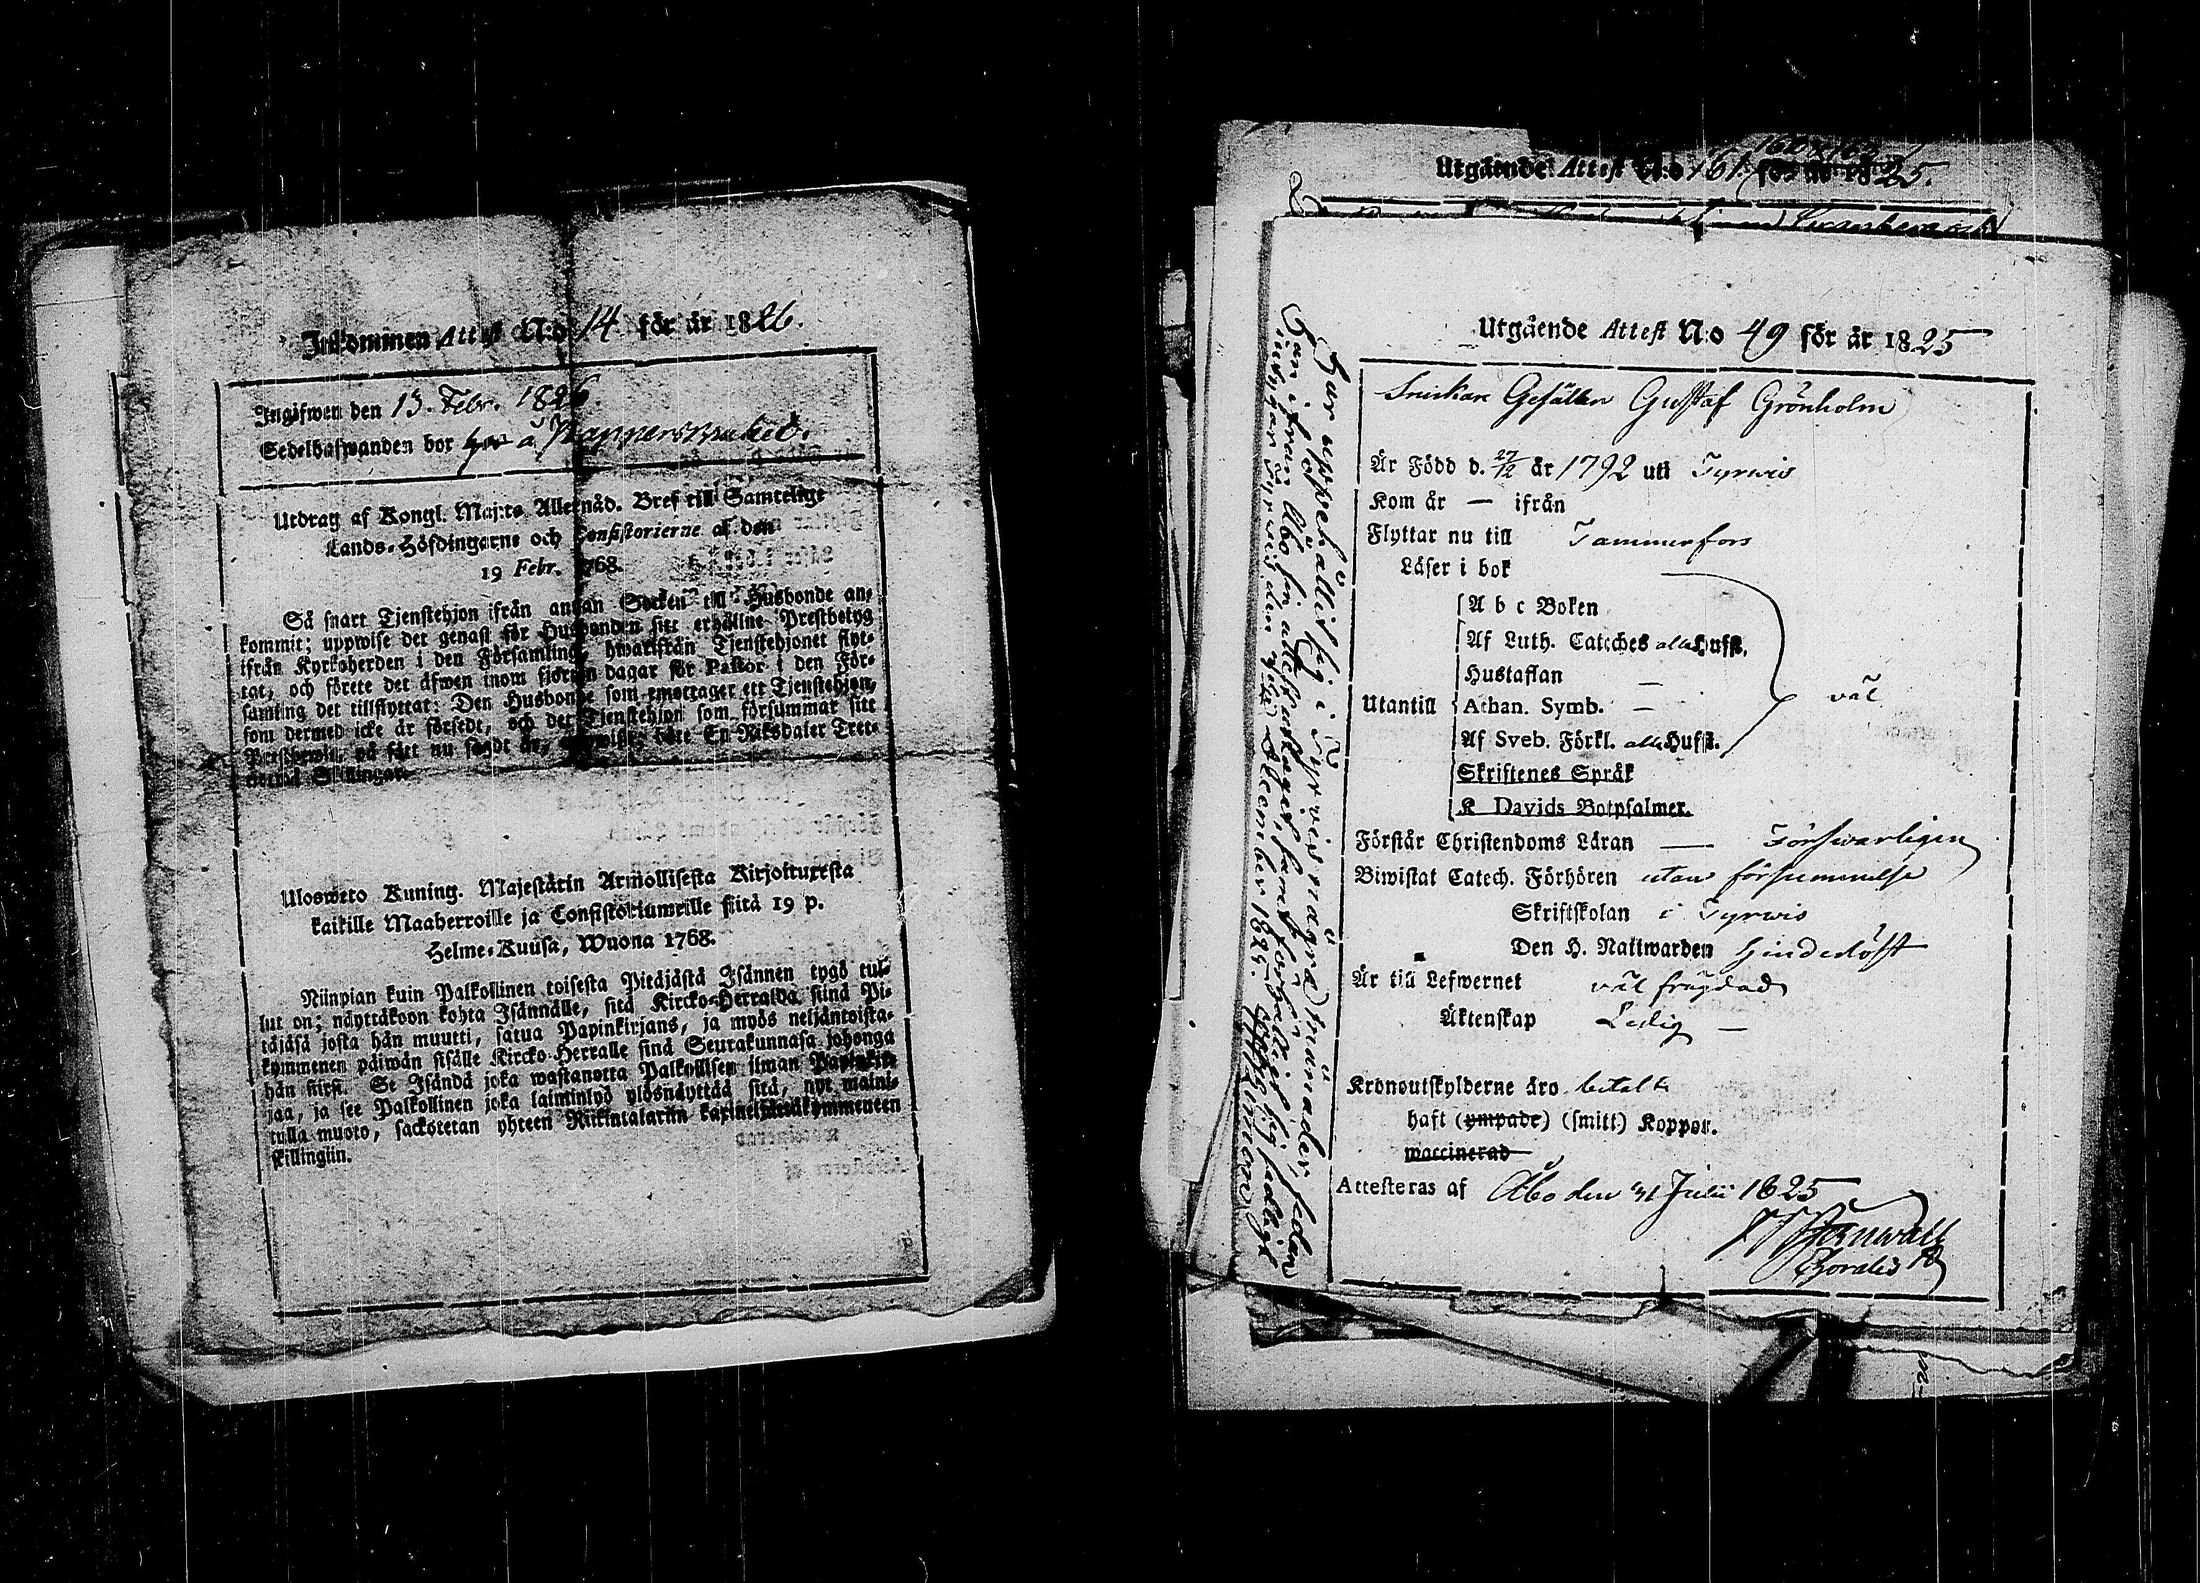 Inkommen Attest N:o 14 för år 1826.
Ingifwen den 13. Febr. 1826.
Sedelhafwanden bor å Pappersbruket.
Utdrag af Kongl. Maj:ts Allernåd. Bref till Samtelige
Lands-Höfdingarne och Consistorierne af den
19 Febr. 1768.
Så snart Tjenstehjon ifrån annan Socken till Husbonde an-
kommit; uppwise det genast för Husbonden sitt erhållne Prestbetyg
ifrån Kyrkoherden i den Församling, hwarifrån Tjenstehjonet flyt-
tat, och förete det äfwen inom fjorton dagar för Pastor i den För-
samling det tillflyttat: Den Husbonde som emottager ett Tjenstehjon,
som dermed icke är försedt, och det Tjenstehjon som försummar sitt
på sätt nu sagdt är, böte En Riksdaler Tret-
Skillingar.
Ulosweto Kuning. Majestätin Armollisesta Kirjoituxesta
kaikille Maaherroille ja Consistoriumeille siitä 19 p.
Helme-Kuusa, Wuona 1768.
Niinpian kuin Palkollinen toisesta Pitäjästä Isännen tygö tul-
lut on; näyttäkoon kohta Isännälle, sitä Kircko-Herralda siinä Pi-
täjäsä josta hän muutti, saatua Papinkirjans, ja myös neljäntoista-
kymmenen päiwän sisälle Kircko-Herralle sinä Seurakunnasa johonga
hän siirsi. Se Isändä joka wastanotta Palkollisen ilman Papinkir-
jaa, ja see Palkollinen joka laiminlyö ylösnäyttää sitä, nyt maini-
tulla muoto, sackotetan yhteen Riikintalariin
skillingiin.
Utgående Attest N:o 161. för år 1825.
Utgående Attest N:o 49 för år 1825
Snickare Gesällen Gustaf Grönholm
Är Född d. 27/12 år 1792 uti Tyrwis
Kom år — ifrån
Flyttar nu till Tammerfors
Läser i bok
A b c Boken
Af Luth. Cateches alla Hufst.
Hustaflan —
Utantill Athan. Symb. — väl
Af Sveb. Förkl. alla Hufst.
Skriftenes Språk
K Davids Botpsalmer.
Förstår Christendoms Läran — Förswarligen
Biwistat Catech. Förhören utan försummelse
Skriftskolan i Tyrwis
Den H. Nattwarden hinderlöst
Är till Lefwernet väl frägdad
Äktenskap Ledig —
Kronoutskylderne äro betalte
haft (ympade) (smitt) Koppor.
waccinerad
Attesteras af Åbo den 31 Julii 1825
Har uppehållit sig i Tyrvis några månader, sedan
han ifrån Åbo sin attest uttagit, samt förhållit sig sedligt
intygar Tyrwis den December 1825.